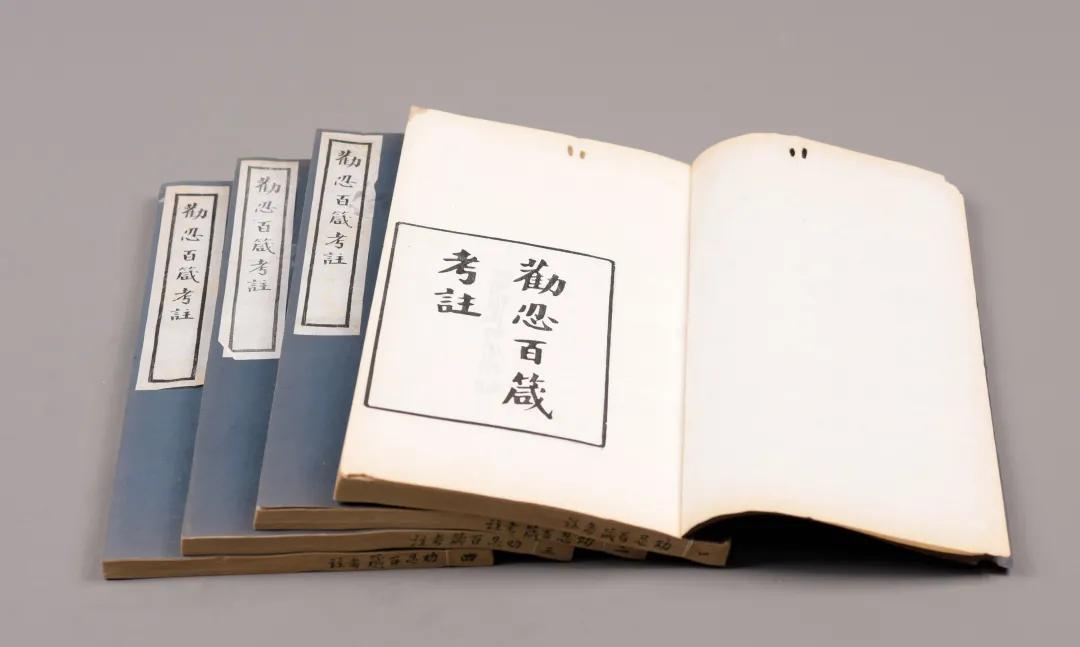 勸忍百箴考註
勸忍百箴考註
勸忍百箴考註
勸忍百箴
考註
一 劝忍百箴考註
二 劝忍百箴考註
三 劝忍百箴考註
四 劝忍百箴考註